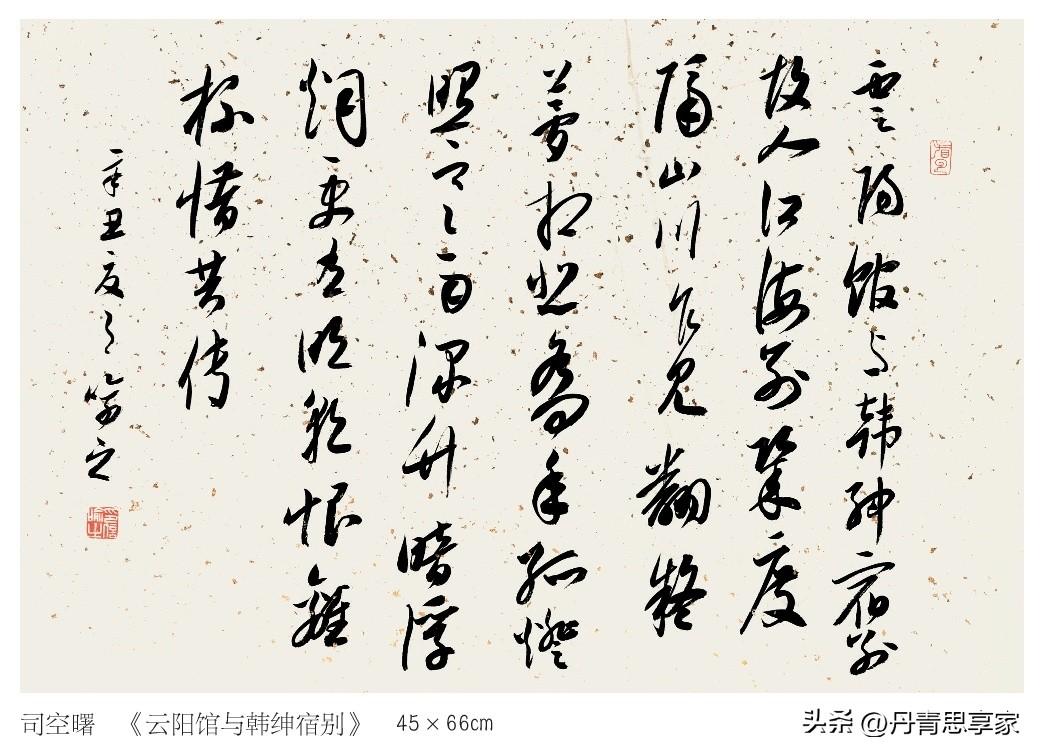 雲陽館与韓紳宿别
故人江海别幾度
隔山川乍見翻疑
夢相悲各问年孤燈
照寒雨深竹暗浮
烟更有明朝恨離
杯惜共传
辛丑夏
司空曙 《云阳馆与韩绅宿别》 45×66cm
头条 @丹青思享家